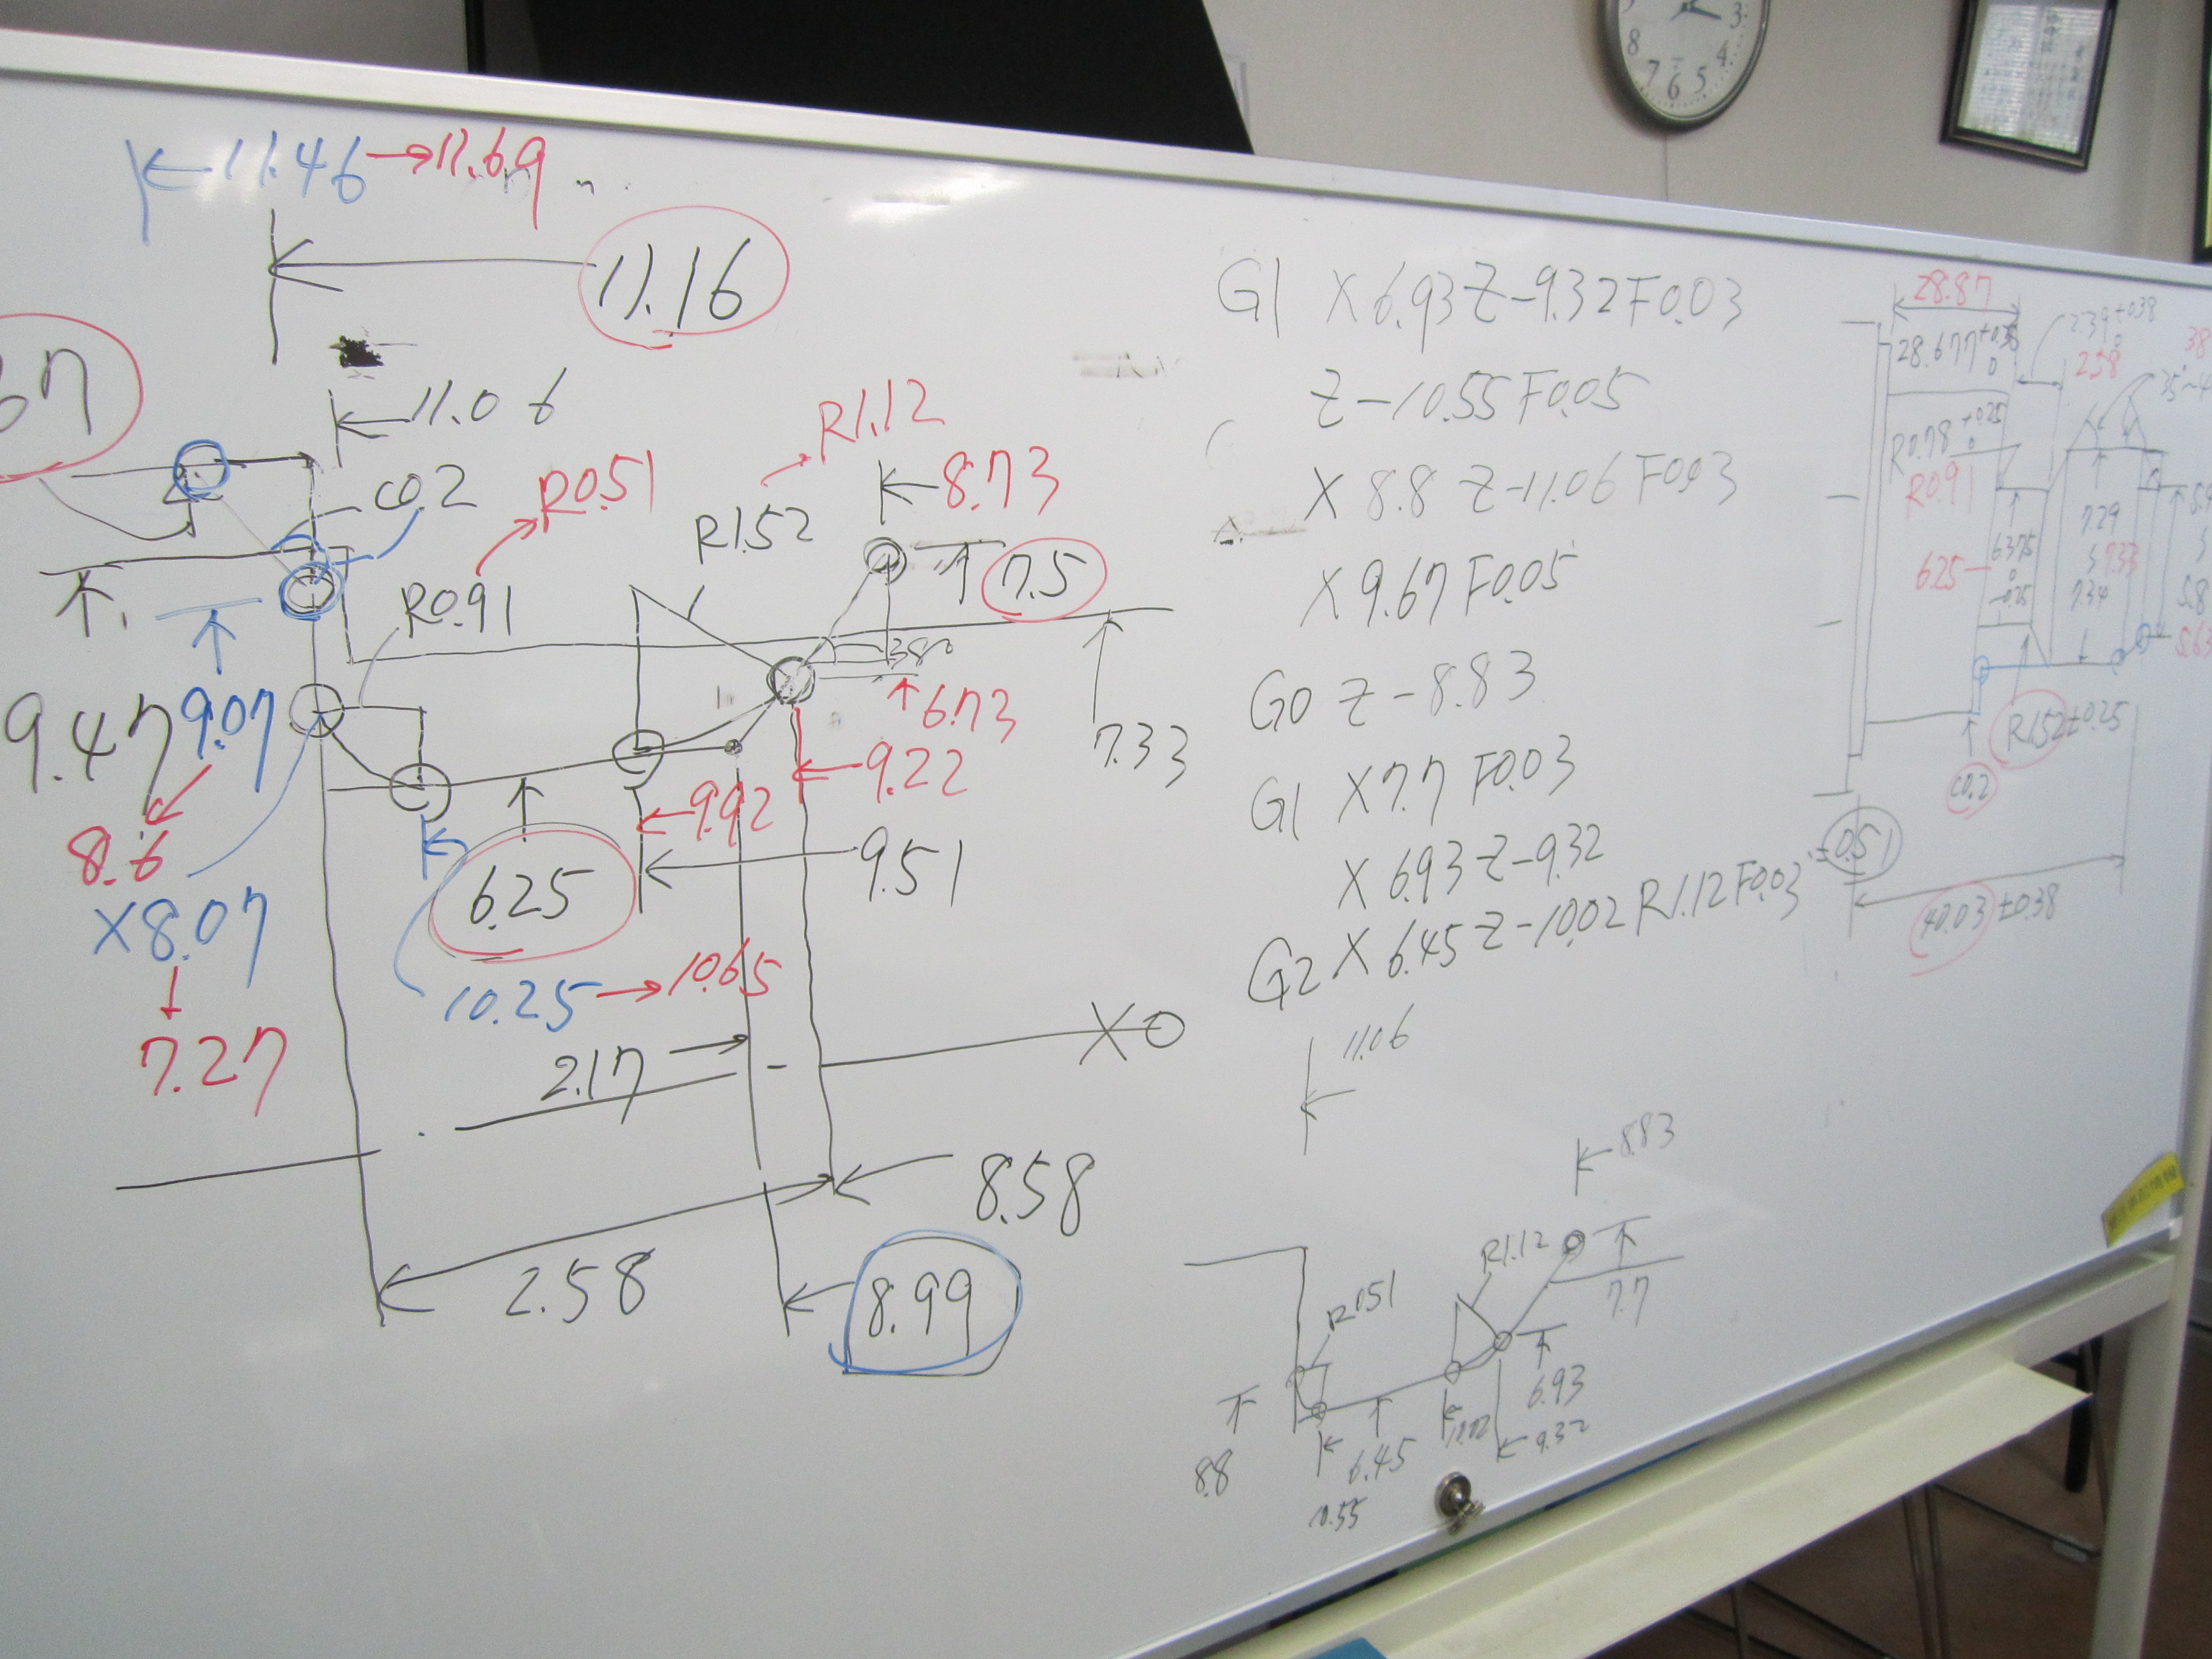 11.46→11.69
11.16
67
11.06
C0.2
R0.51
R1.12
8.73
R1.52
7.5
R0.91
38°
9.47
9.07
6.73
7.33
9.22
9.92
8.6
9.51
6.25
X8.07
10.25→10.65
7.27
2.17
X0
8.58
2.58
8.99
G1 X6.93Z-9.32F0.03
Z-10.55F0.05
X8.8 Z-11.06F0.03
X9.67F0.05
G0 Z-8.83
G1 X7.7 F0.03
X6.93Z-9.32
G2 X6.45Z-10.02R1.12F0.03
11.06
8.83
R1.12
R0.51
7.7
6.93
8.8
6.45
10.02
9.32
10.55
28.87
2.58
38
R0.78 +0.25 0
R0.91
7.29
6.25
7.33
7.34
5.8
5.63
R1.52±0.25
C0.2
0.51
40.03±0.38
3
4
5
6
7
8